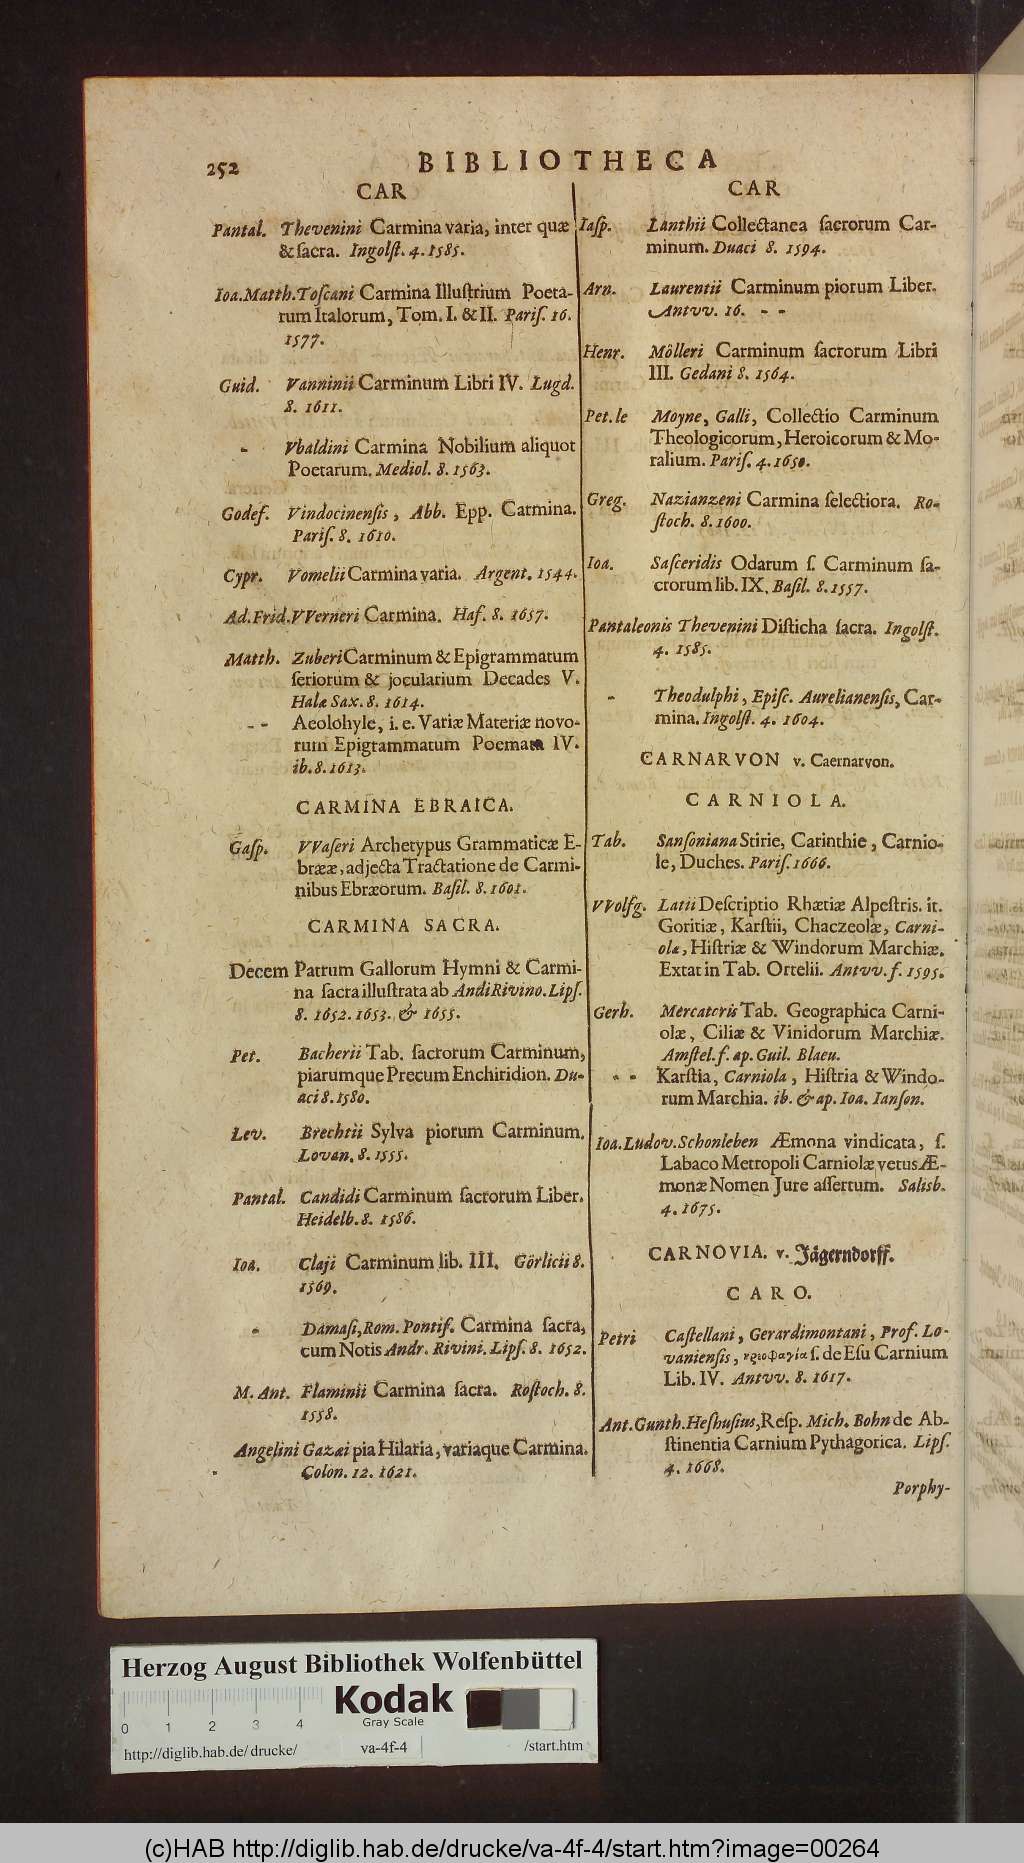 252
BIBLIOTHECA
CAR
Pantal. Thevenini Carmina varia, inter quæ
& sacra. Ingolſt. 4. 1585.
Ioa. Matth. Toſcani Carmina Illuſtrium Poeta-
rum Italorum, Tom. I. & II. Pariſ. 16.
1577.
Guid. Vanninii Carminum Libri IV. Lugd.
8. 1611.
- Vbaldini Carmina Nobilium aliquot
Poetarum. Mediol. 8. 1563.
Godef. Vindocinenſis, Abb. Epp. Carmina.
Pariſ. 8. 1610.
Cypr. Vomelii Carmina varia. Argent. 1544.
Ad. Frid. VVerneri Carmina. Haf. 8. 1657.
Matth. Zuberi Carminum & Epigrammatum
ſeriorum & jocularium Decades V.
Halæ Sax. 8. 1614.
- - Aeolohyle, i. e. Variæ Materiæ novo-
rum Epigrammatum Poemata IV.
ib. 8. 1613.
CARMINA EBRAICA.
Gaſp. VVaſeri Archetypus Grammaticæ E-
brææ, adjecta Tractatione de Carmi-
nibus Ebræorum. Baſil. 8. 1601.
CARMINA SACRA.
Decem Patrum Gallorum Hymni & Carmi-
na ſacra illuſtrata ab Andr. Rivino. Lipſ.
8. 1652. 1653. & 1655.
Pet. Bacherii Tab. ſacrorum Carminum,
piarumque Precum Enchiridion. Du-
aci 8. 1580.
Lev. Brechtii Sylva piorum Carminum.
Lovan. 8. 1555.
Pantal. Candidi Carminum ſacrorum Liber.
Heidelb. 8. 1586.
Ioa. Claji Carminum lib. III. Görlicii 8.
1569.
- Damaſi, Rom. Pontif. Carmina ſacra,
cum Notis Andr. Rivini. Lipſ. 8. 1652.
M. Ant. Flaminii Carmina ſacra. Roſtoch. 8.
1558.
Angelini Gazai pia Hilaria, variaque Carmina.
Colon. 12. 1621.
CAR
Iaſp. Lanthii Collectanea ſacrorum Car-
minum. Duaci 8. 1594.
Arn. Laurentii Carminum piorum Liber.
Antvv. 16. - -
Henr. Mölleri Carminum ſacrorum Libri
III. Gedani 8. 1564.
Pet. le Moyne, Galli, Collectio Carminum
Theologicorum, Heroicorum & Mo-
ralium. Pariſ. 4. 1650.
Greg. Nazianzeni Carmina ſelectiora. Ro-
ſtoch. 8. 1600.
Ioa. Saſceridis Odarum ſ. Carminum ſa-
crorum lib. IX. Baſil. 8. 1557.
Pantaleonis Thevenini Diſticha ſacra. Ingolſt.
4. 1585.
- Theodulphi, Epiſc. Aurelianenſis, Car-
mina. Ingolſt. 4. 1604.
CARNARVON v. Caernarvon.
CARNIOLA.
Tab. Sanſoniana Stirie, Carinthie, Carnio-
le, Duches. Pariſ. 1666.
VVolfg. Latii Deſcriptio Rhætiæ Alpeſtris. it.
Goritiæ, Karſtii, Chaczeolæ, Carni-
olæ, Hiſtriæ & Windorum Marchiæ.
Extat in Tab. Ortelii. Antvv. f. 1595.
Gerh. Mercatoris Tab. Geographica Carni-
olæ, Ciliæ & Vinidorum Marchiæ.
Amſtel. f. ap. Guil. Blaeu.
- - Karſtia, Carniola, Hiſtria & Windo-
rum Marchia. ib. & ap. Ioa. Ianſon.
Ioa. Ludov. Schonleben Æmona vindicata, ſ.
Labaco Metropoli Carniolæ vetus Æ-
monæ Nomen Jure aſſertum. Salisb.
4. 1675.
CARNOVIA. v. Jägerndorff.
CARO.
Petri Caſtellani, Gerardimontani, Prof. Lo-
vanienſis, κρεοφαγία ſ. de Eſu Carnium
Lib. IV. Antvv. 8. 1617.
Ant. Gunth. Heſhuſius, Reſp. Mich. Bohn de Ab-
ſtinentia Carnium Pythagorica. Lipſ.
4. 1668.
Porphy-
Herzog August Bibliothek Wolfenbüttel
0 1 2 3 4
Kodak
Gray Scale
http://diglib.hab.de/drucke/ va-4f-4 /start.htm
(c)HAB http://diglib.hab.de/drucke/va-4f-4/start.htm?image=00264